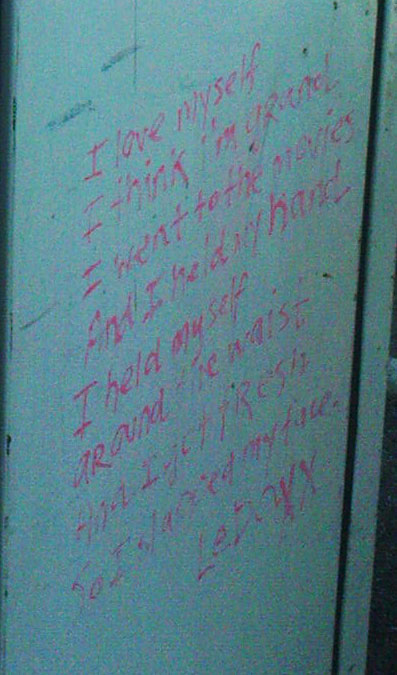 I love myself
I think i'm grand
I went to the movies
And I held my hand
I held myself
around the waist
And I got fResh
So I slapped my face.